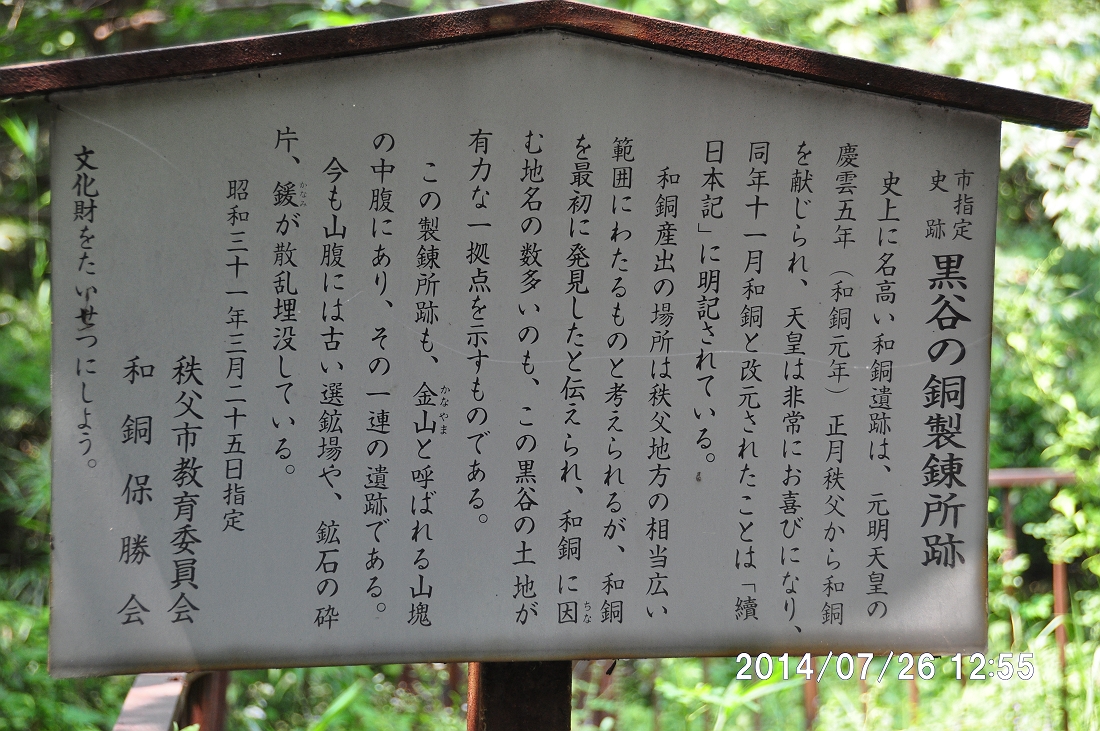 市指定
史跡
黒谷の銅製錬所跡
史上に名高い和銅遺跡は、元明天皇の
慶雲五年（和銅元年）正月秩父から和銅
を献じられ、天皇は非常にお喜びになり、
同年十一月和銅と改元されたことは「續
日本記」に明記されている。
和銅産出の場所は秩父地方の相当広い
範囲にわたるものと考えられるが、和銅
を最初に発見したと伝えられ、和銅に因
ちな
む地名の数多いのも、この黒谷の土地が
有力な一拠点を示すものである。
この製錬所跡も、金山と呼ばれる山塊
かなやま
の中腹にあり、その一連の遺跡である。
今も山腹には古い選鉱場や、鉱石の砕
片、鍰が散乱埋没している。
かなみ
昭和三十一年三月二十五日指定
秩父市教育委員会
和銅保勝会
文化財をたいせつにしよう。
2014/07/26 12:55